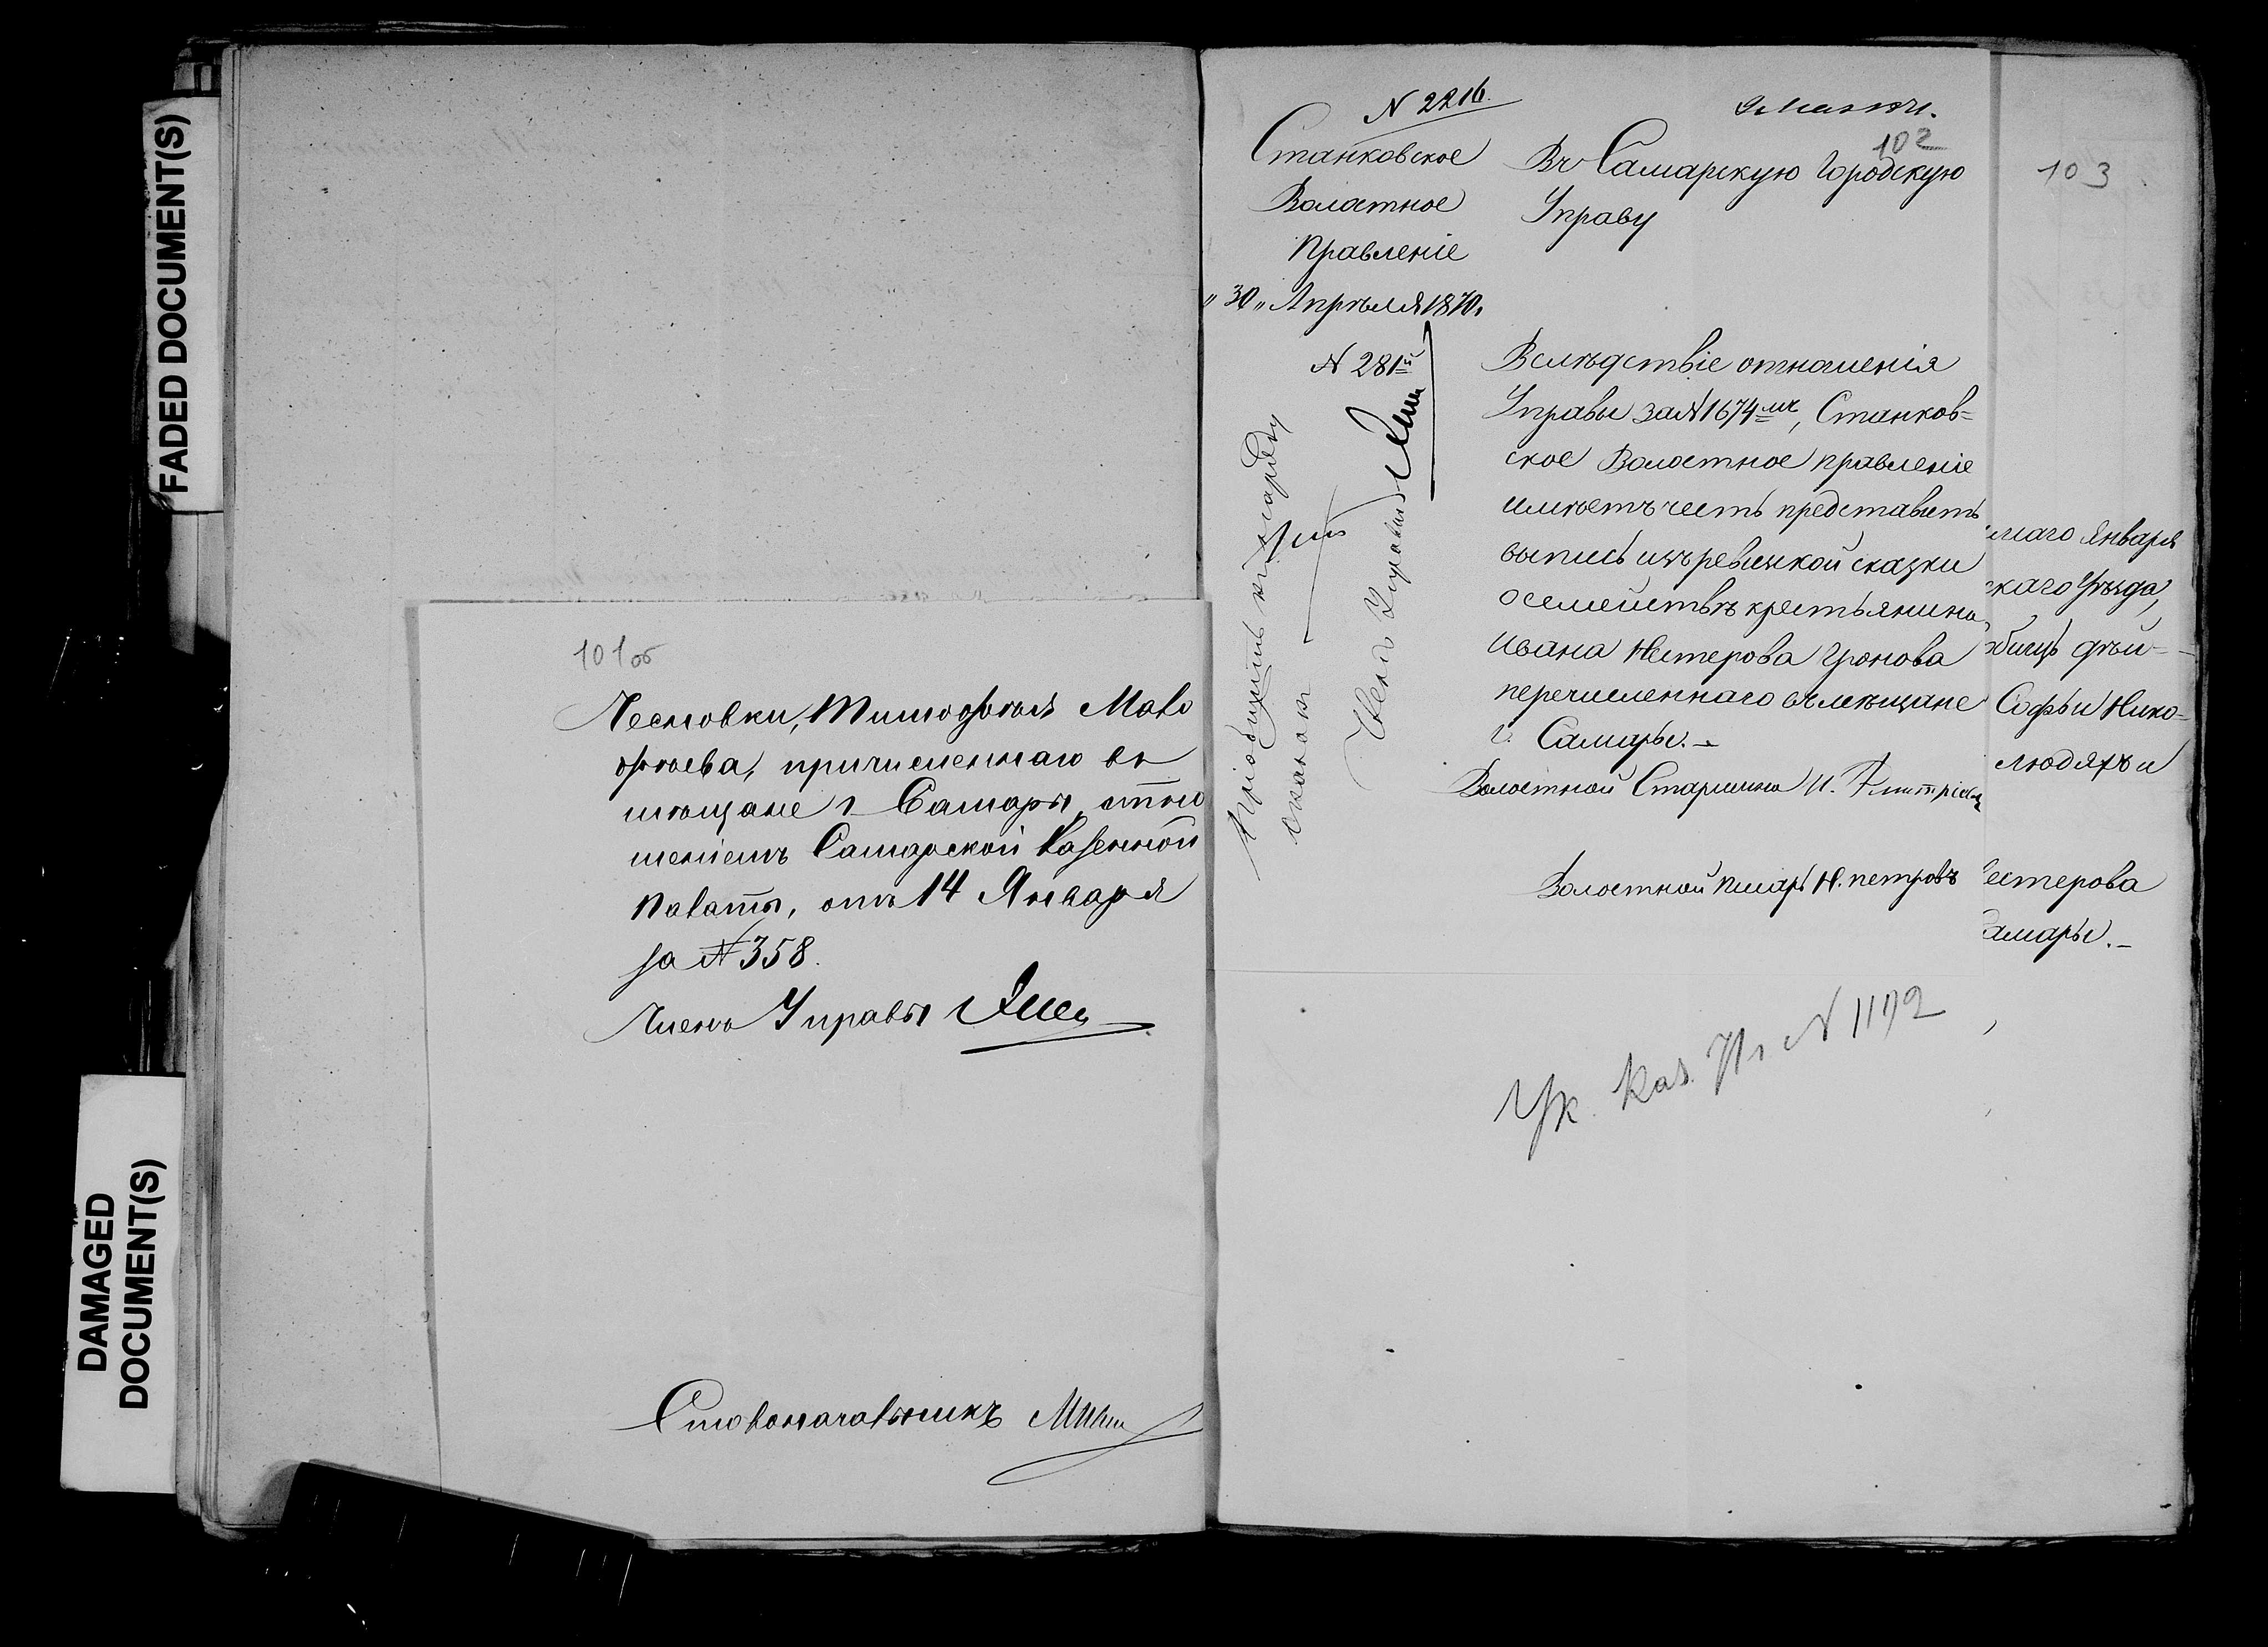 FADED DOCUMENT(S)
DAMAGED
DOCUMENT(S)
101об
Лесновки, Тимофѣя Мало
фѣева, причисленнаго въ
мѣщане г. Самары, отно
шеніемъ Самарской Казенной
Палаты, отъ 14 Января
за № 358.
Членъ Управы
Столоначальникъ
N 2216.
102
Станковское
Волостное
Правленіе
"30" Апрѣля 1870.
N 281й
Въ Самарскую Городскую
Управу
Вслѣдствіе отношенія
Управы за N 1674мъ, Станков=
ское Волостное правленіе
имѣетъ честь представить
выпись изъ ревизкой сказки
о семействѣ крестьянина
Ивана Нестерова
перечисленнаго въ мѣщане
г. Самары.
Волостной Старшина И.
Волостной писарь Н. Петровъ
Пріобщить къ
сказкамъ
Членъ Управы
Ук. Каз. Пл. N 1192
103
маго Января
скаго Уѣзда,
Софьи Нико=
людяхъ и
естерова
амары.